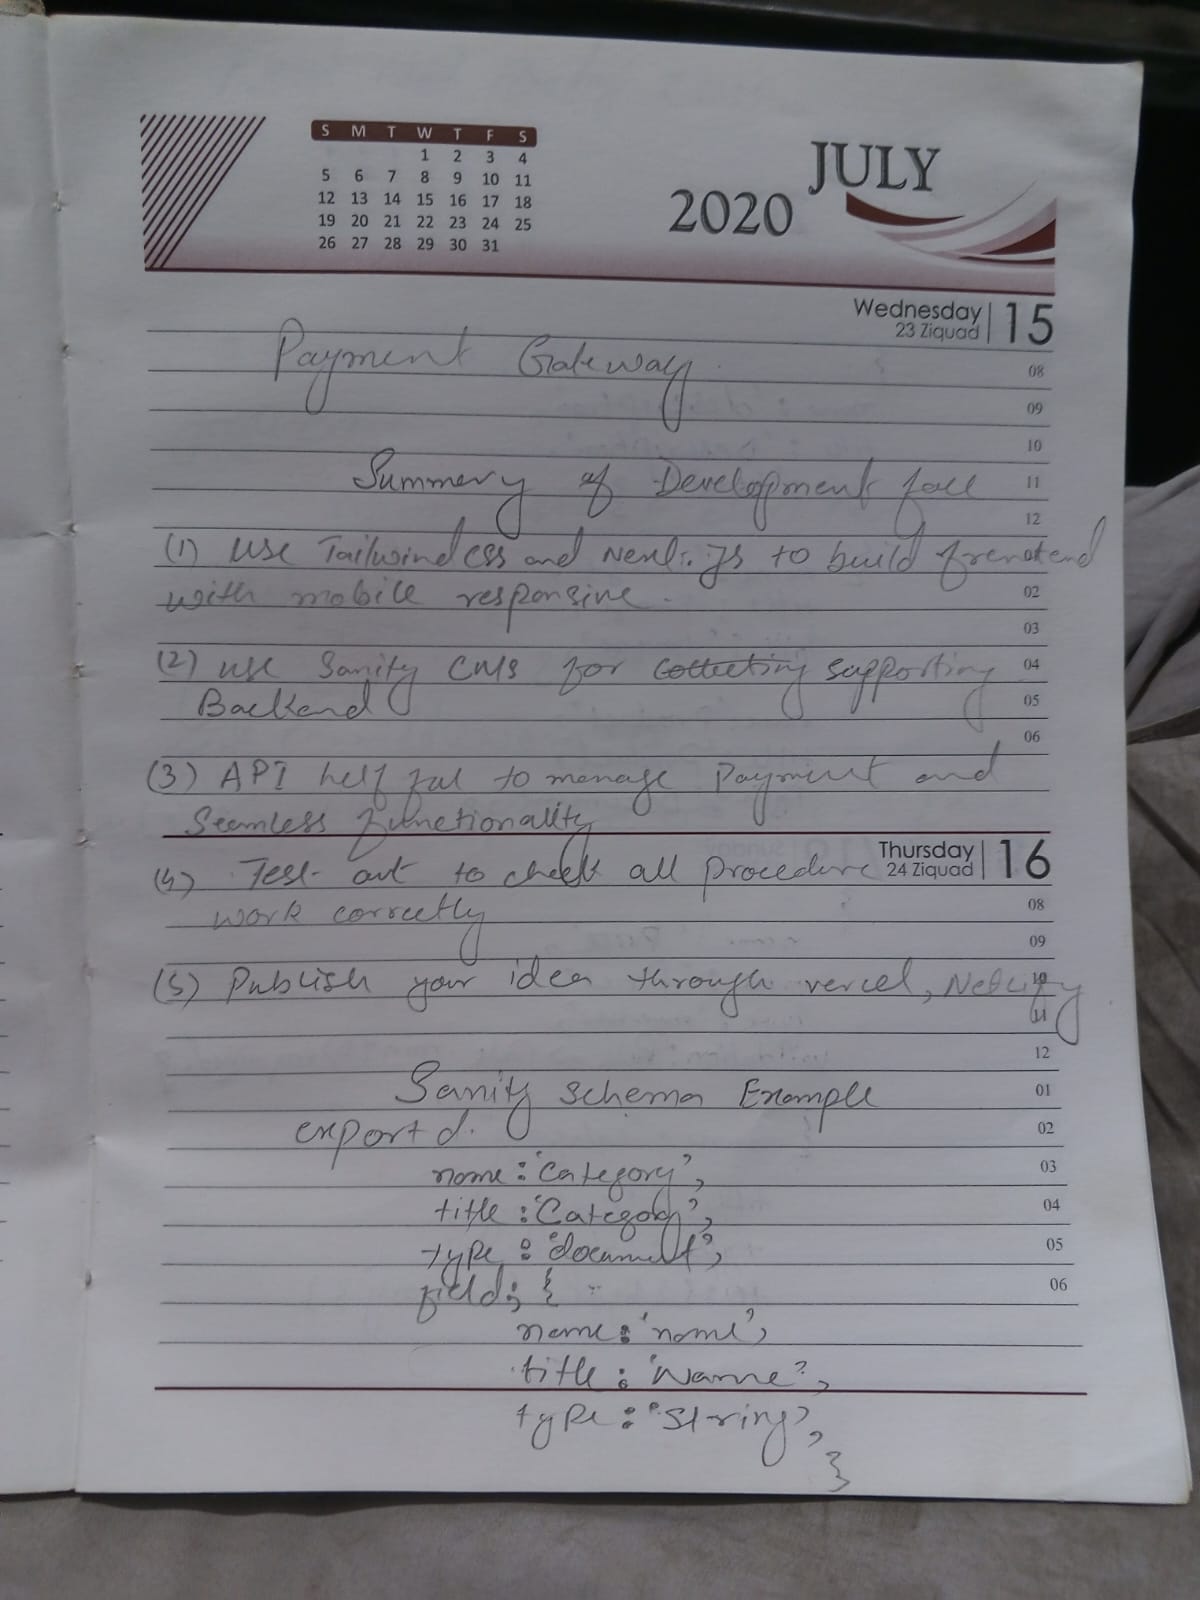 S M T W T F S
1 2 3 4
5 6 7 8 9 10 11
12 13 14 15 16 17 18
19 20 21 22 23 24 25
26 27 28 29 30 31
JULY
2020
Wednesday 15
23 Ziquad
Payment Gateway
08
09
10
Summery of Development
11
12
(1) use Tailwindcss and Next.Js to build frenotend
with mobile responsive.
02
03
(2) use Sanity CMS for collecting supporting
04
Backend
05
06
(3) API helf ful to manage Payment and
Seamless functionality
Thursday 16
24 Ziquad
(4) Test out to check all procedure
work correctly
08
09
(5) Publish your idea through vercel, Netlify
10
11
12
Sanity schema Example
01
export d.
02
name : 'Category',
03
title : 'Category',
04
type : 'document',
05
field; {
06
name : 'name',
title : 'Name',
type : 'string',
}